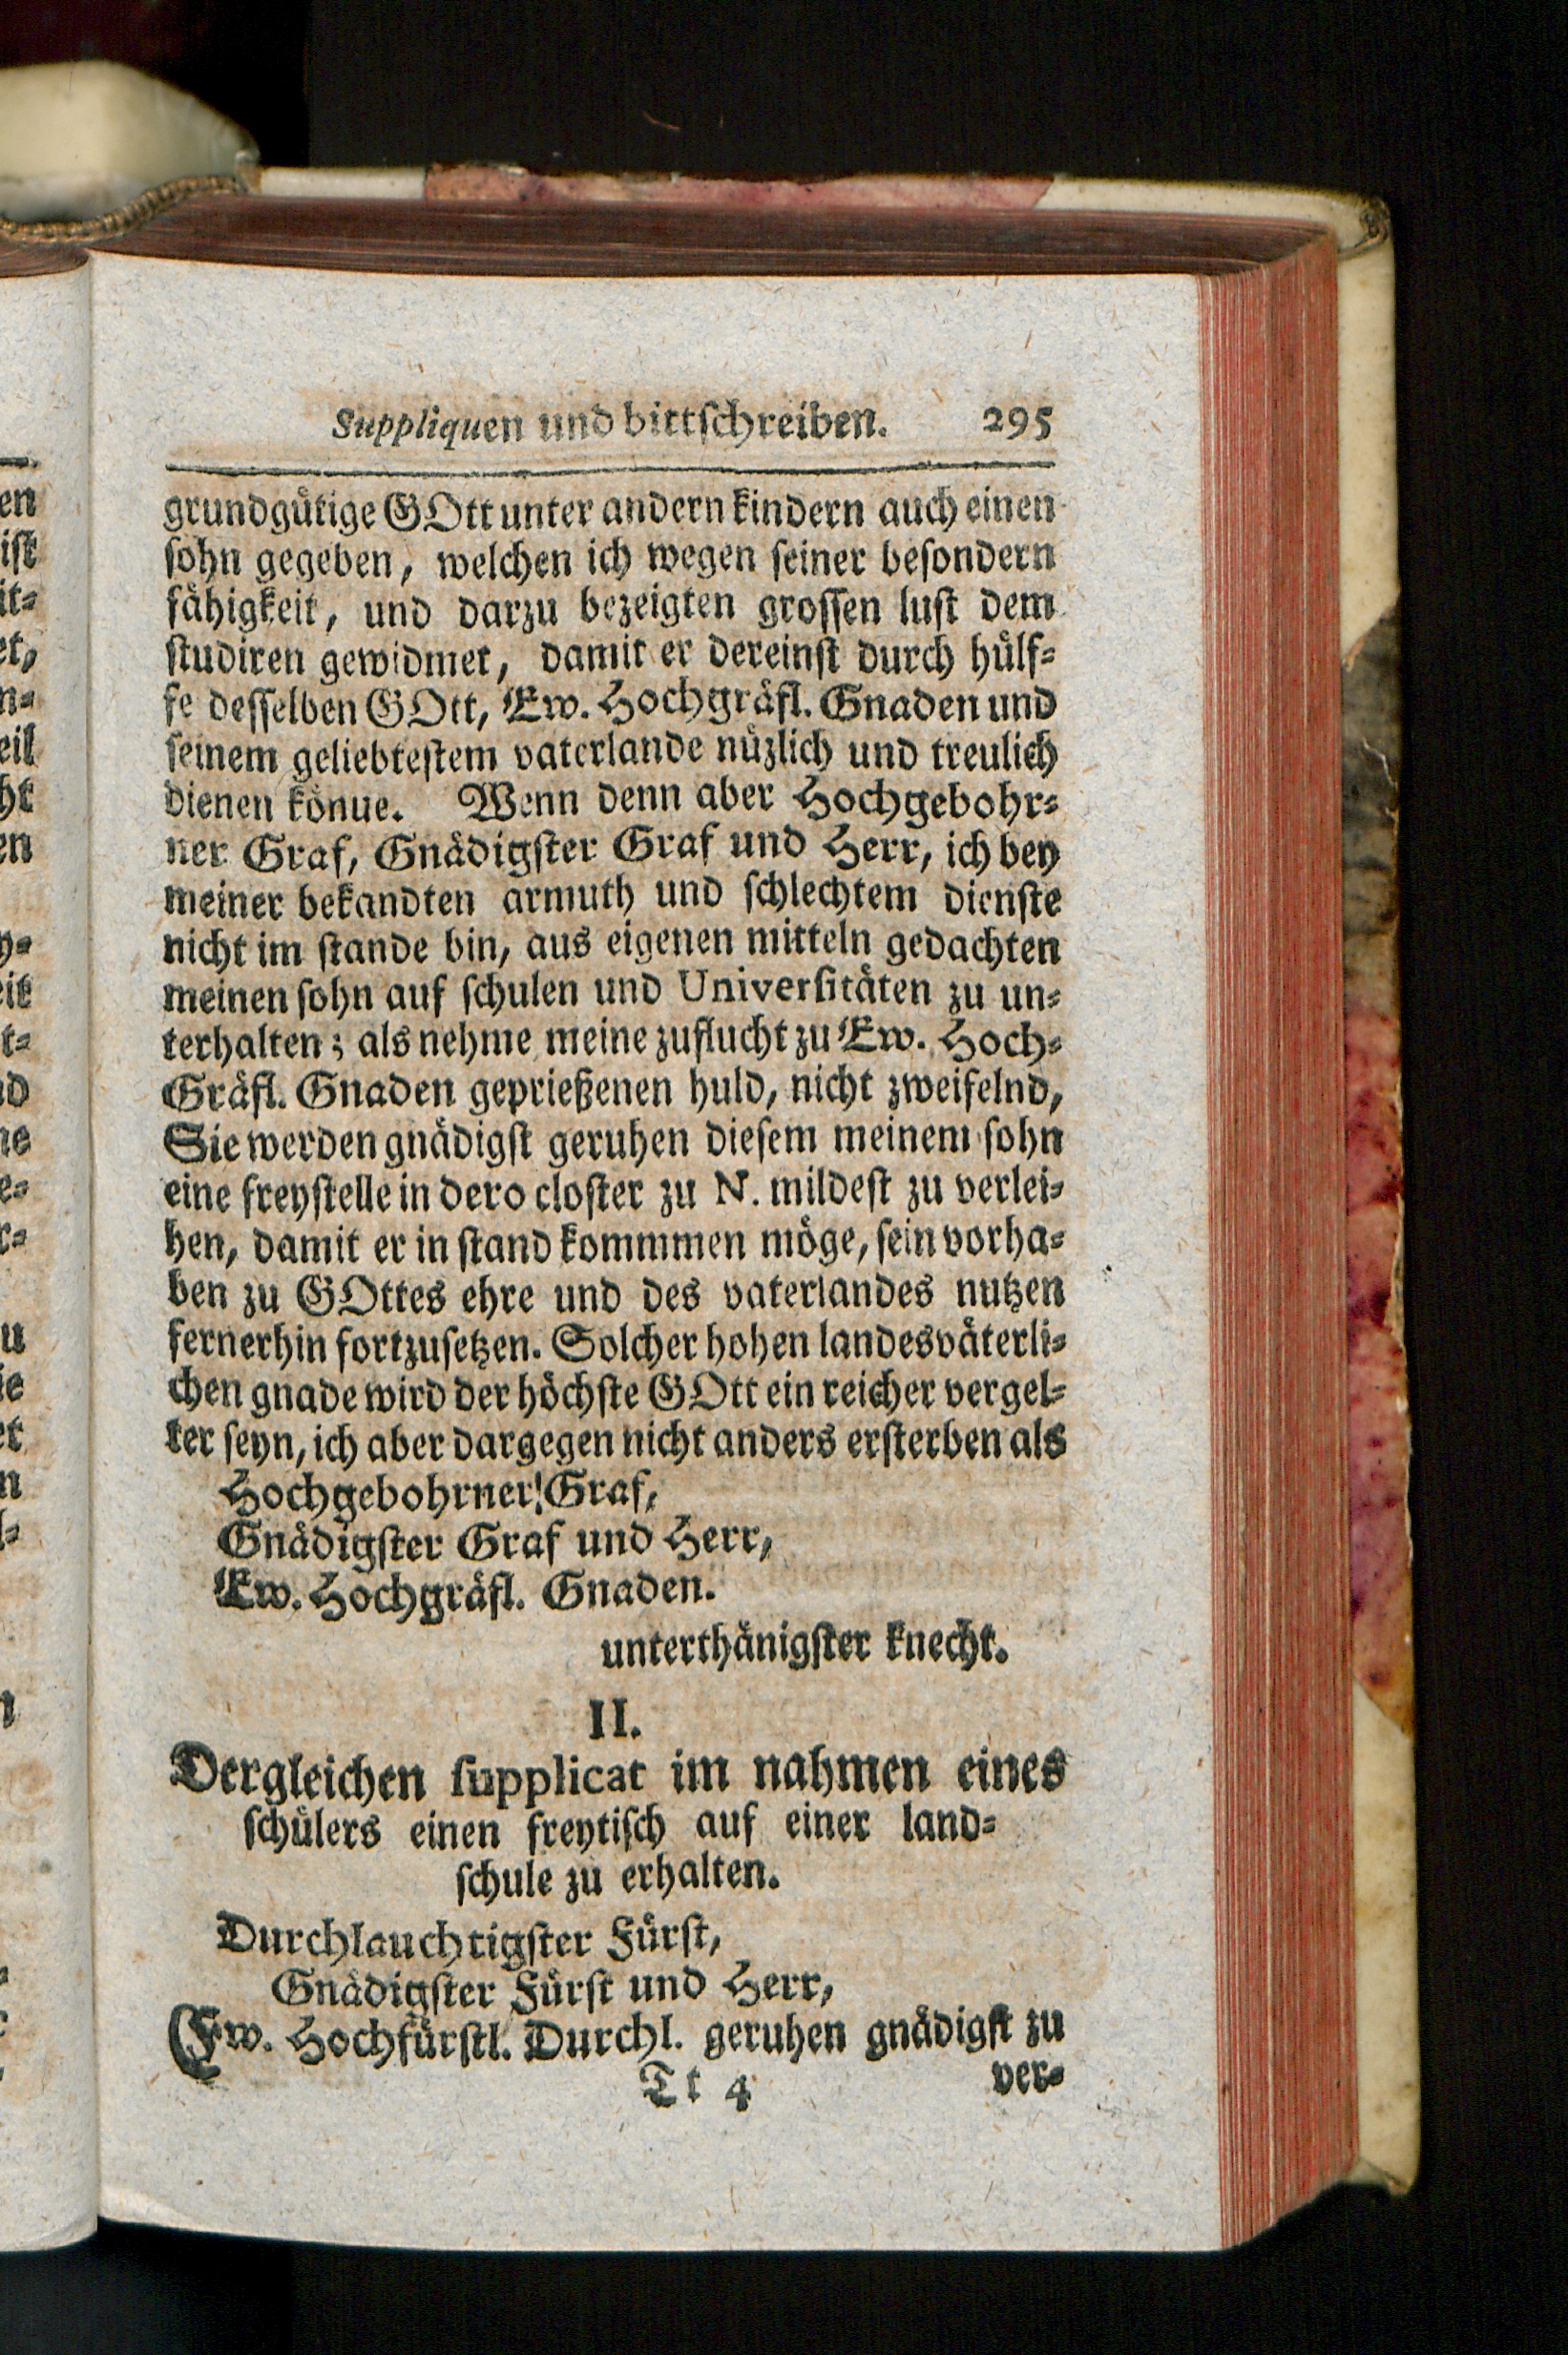 Suppliquen und bittschreiben. 295
grundgütige GOtt unter andern kindern auch einen
sohn gegeben, welchen ich wegen seiner besondern
fähigkeit, und darzu bezeigten grossen lust dem
studiren gewidmet, damit er dereinst durch hülf-
fe desselben GOtt, Ew. Hochgräfl. Gnaden und
seinem geliebtestem vaterlande nüzlich und treulich
dienen könue. Wenn denn aber Hochgebohr-
ner Graf, Gnädigster Graf und Herr, ich bey
meiner bekandten armuth und schlechtem dienste
nicht im stande bin, aus eigenen mitteln gedachten
meinen sohn auf schulen und Universitäten zu un-
terhalten; als nehme meine zuflucht zu Ew. Hoch-
Gräfl. Gnaden geprießenen huld, nicht zweifelnd,
Sie werden gnädigst geruhen diesem meinem sohn
eine freystelle in dero closter zu N. mildest zu verlei-
hen, damit er in stand kommmen möge, sein vorha-
ben zu GOttes ehre und des vaterlandes nutzen
fernerhin fortzusetzen. Solcher hohen landesväterli-
chen gnade wird der höchste GOtt ein reicher vergel-
ter seyn, ich aber dargegen nicht anders ersterben als
Hochgebohrner! Graf,
Gnädigster Graf und Herr,
Ew. Hochgräfl. Gnaden.
unterthänigster knecht.
II.
Dergleichen supplicat im nahmen eines
schülers einen freytisch auf einer land-
schule zu erhalten.
Durchlauchtigster Fürst,
Gnädigster Fürst und Herr,
Ew. Hochfürstl. Durchl. geruhen gnädigst zu
Tt 4 ver-